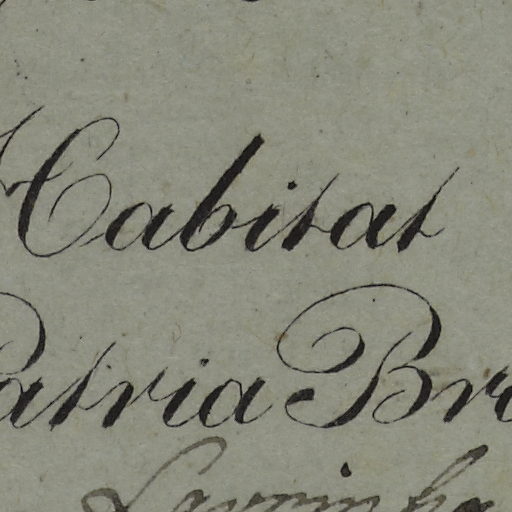 Habitat
Patria Bra